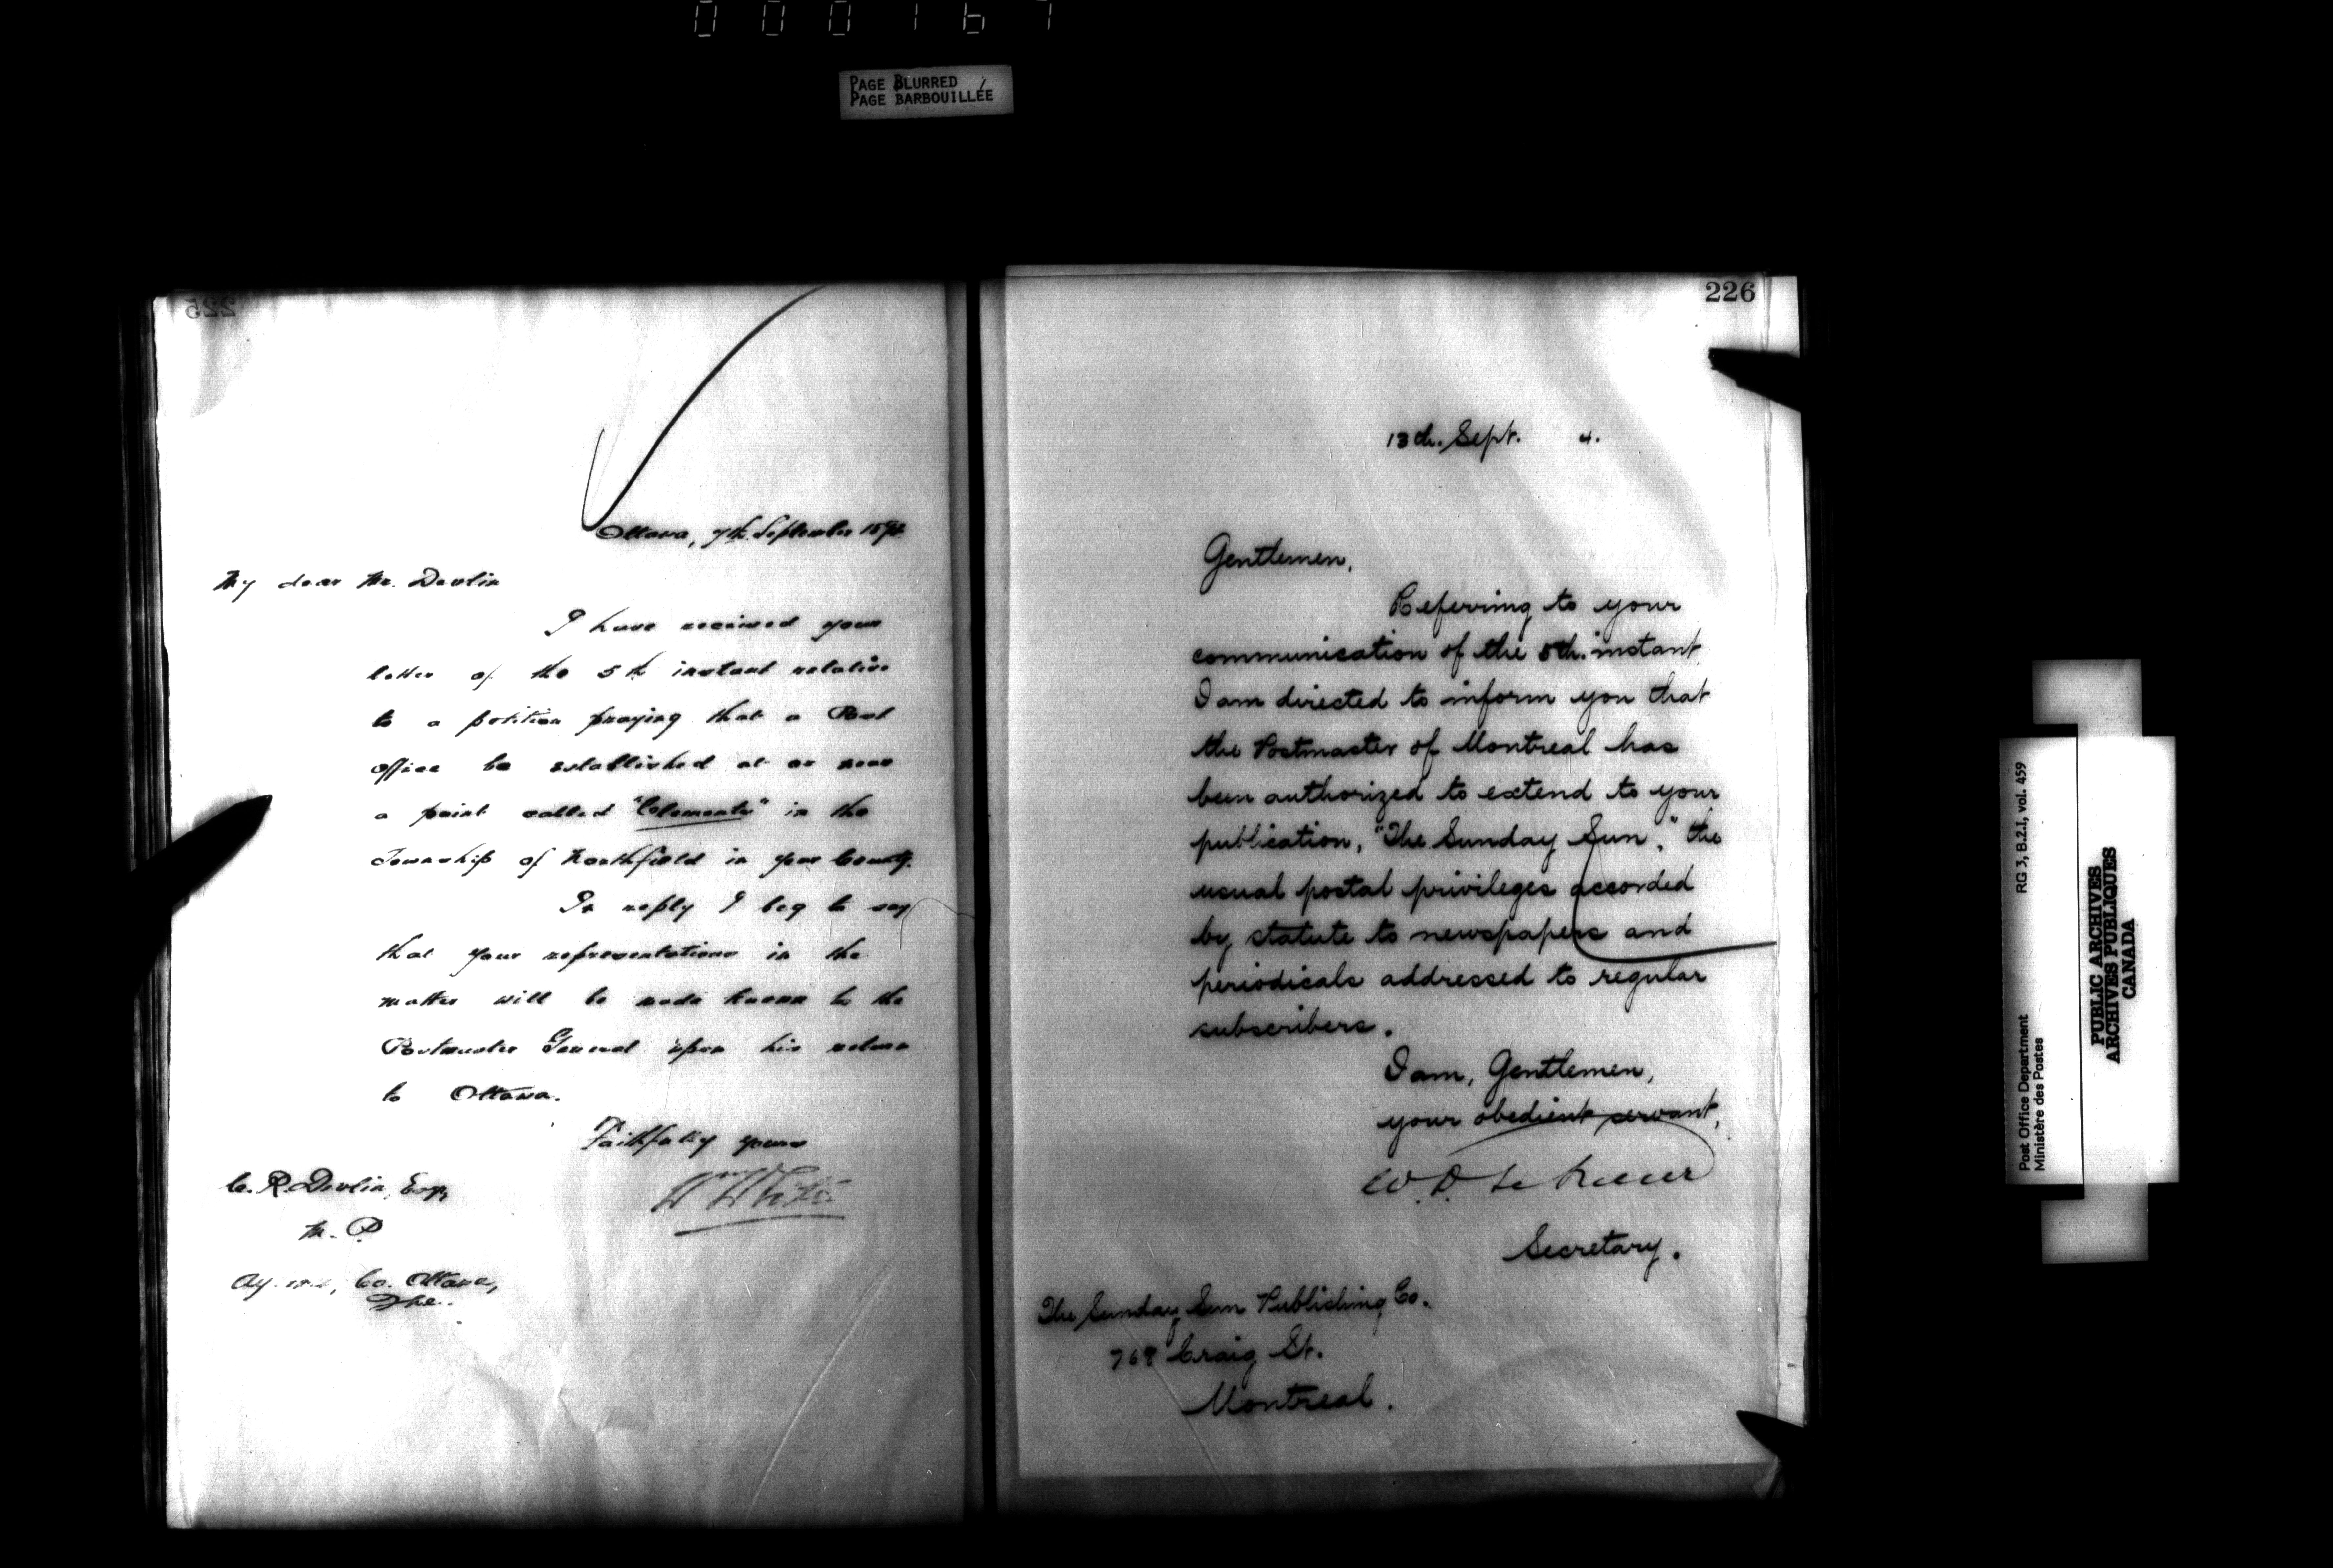 000167
PAGE BLURRED
PAGE BARBOUILLÉE
225
Ottawa, 7th. September 1894.
My dear Mr. Devlin
I have received your
letter of the 5th instant relative
to a petition praying that a Post
office be established at or near
a point called "Clements" in the
Township of Northfield in your County.
In reply I beg to say
that your representations in the
matter will be made known to the
Postmaster General upon his return
to Ottawa.
Faithfully yours
Wm White
C. R. Devlin, Esq,
M. P
Aylmer, Co. Ottawa,
Que.
226
13th. Sept. 4.
Gentlemen,
Referring to your
communication of the 5th. instant,
I am directed to inform you that
the Postmaster of Montreal has
been authorized to extend to your
publication, "The Sunday Sun," the
usual postal privileges accorded
by statute to newspapers and
periodicals addressed to regular
subscribers.
I am, Gentlemen,
your obedient servant,
W. D. Le Sueur
Secretary.
The Sunday Sun Publishing Co.
768 Craig St.
Montreal.
Post Office Department
Ministère des Postes
RG 3, B.2.1, vol. 459
PUBLIC ARCHIVES
ARCHIVES PUBLIQUES
CANADA